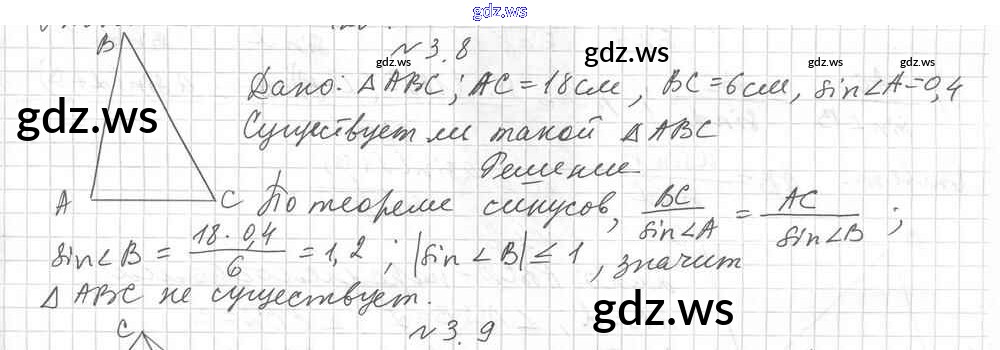 gdz.ws
N 3.8
gdz.ws gdz.ws gdz.ws gdz.ws
Дано: △ABC; AC = 18 см, BC = 6 см, sin∠A = 0,4
gdz.ws
Существует ли такой △ABC
Решение
B
A
C
По теореме синусов, BC / sin∠A = AC / sin∠B ;
sin∠B = 18 · 0,4 / 6 = 1,2 ; |sin∠B| ≤ 1 , значит
△ABC не существует.
gdz.ws
C
N 3.9